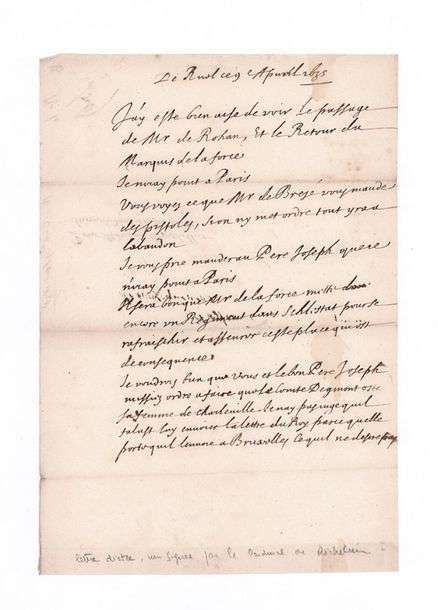 De Ruel ce 9 Apuril 1635
J'ay esté bien aise de voir le passage
de Mr de Rohan, Et le Retour du
Marquis de la force
Je n'iray point a Paris
Vous voyez ce que Mr de Brezé vous mande
des pistoles, si on n'y met ordre tout yra a
labandon
Je vous prie mander au Pere Joseph que je
n'iray point a Paris
Il sera bon que Mr de la force mette
encore un Regiment dans Schlistat pour se
rafraischir et asseurer ceste place qui est
de consequence
Je voudrois bien que vous et le bon Pere Joseph
missiez ordre a faire que le Comte Degmont oste
sa femme de Charleville. Je n'ay pas jugé qu'il
falust luy envoier la lettre du Roy parce quelle
porte qu'il l'envoie a Bruxelles ce qu'il ne desire pas
lettre dictée, non signée par le Cardinal de Richelieu